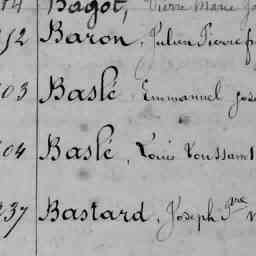 Bagot, Pierre Marie
12 Baron, Julien Pierre
03 Baslé Emmanuel
04 Baslé, Louis Toussaint
237 Bastard, Joseph